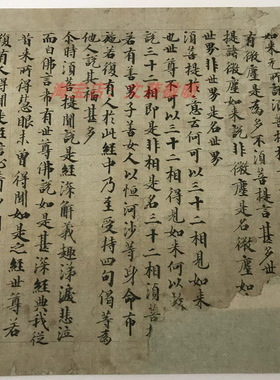 如来无所說須菩
有微塵是為多不須菩提言甚多世
提諸微塵如来說非微塵是名微塵如
世界非世界是名世界
須菩提於意云何可以三十二相見如来
也世尊不可以三十二相得見如来何以故
說三十二相即是非相是名三十二相須菩
若有善男子善女人以恒河沙等身命布
施若復有人於此經中乃至受持四句偈等為
他人說其福甚多
尒時須菩提聞說是經深解義趣涕淚悲泣
而白佛言希有世尊佛說如是甚深經典我從
昔来所得慧眼未曾得聞如是之經世尊若
復有人得聞是經信心清